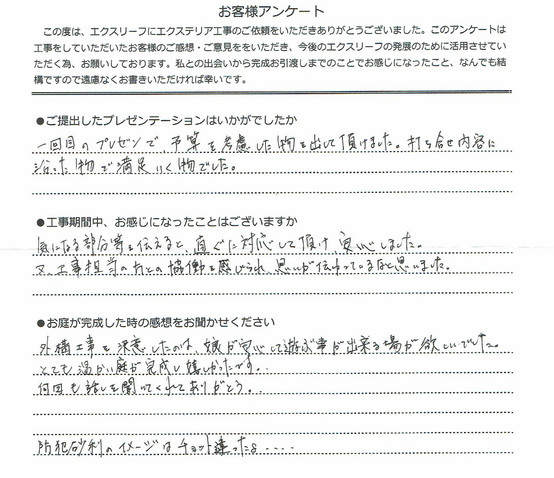 お客様アンケート
この度は、エクスリーフにエクステリア工事のご依頼をいただきありがとうございました。このアンケートは
工事をしていただいたお客様のご感想・ご意見ををいただき、今後のエクスリーフの発展のために活用させてい
ただく為、お願いしております。私との出会いから完成お引渡しまでのことでお感じになったこと、なんでも結
構ですので遠慮なくお書きいただければ幸いです。
●ご提出したプレゼンテーションはいかがでしたか
一回目のプレゼンで、予算を考慮した物を出して頂けました。打ち合せ内容に
沿った物で満足いく物でした。
●工事期間中、お感じになったことはございますか
気になる部分等を伝えると、直ぐに対応して頂け、安心しました。
又、工事担当の方との協働を感じられ、思いが伝わっているなと思いました。
●お庭が完成した時の感想をお聞かせください
外構工事を決意したのは、娘が安心して遊ぶ事が出来る場が欲しいでした。
とても温かい庭が完成し嬉しかったです。
何回も話しを聞いてくれてありがとう。
防犯砂利のイメージはチョット違ったよ....